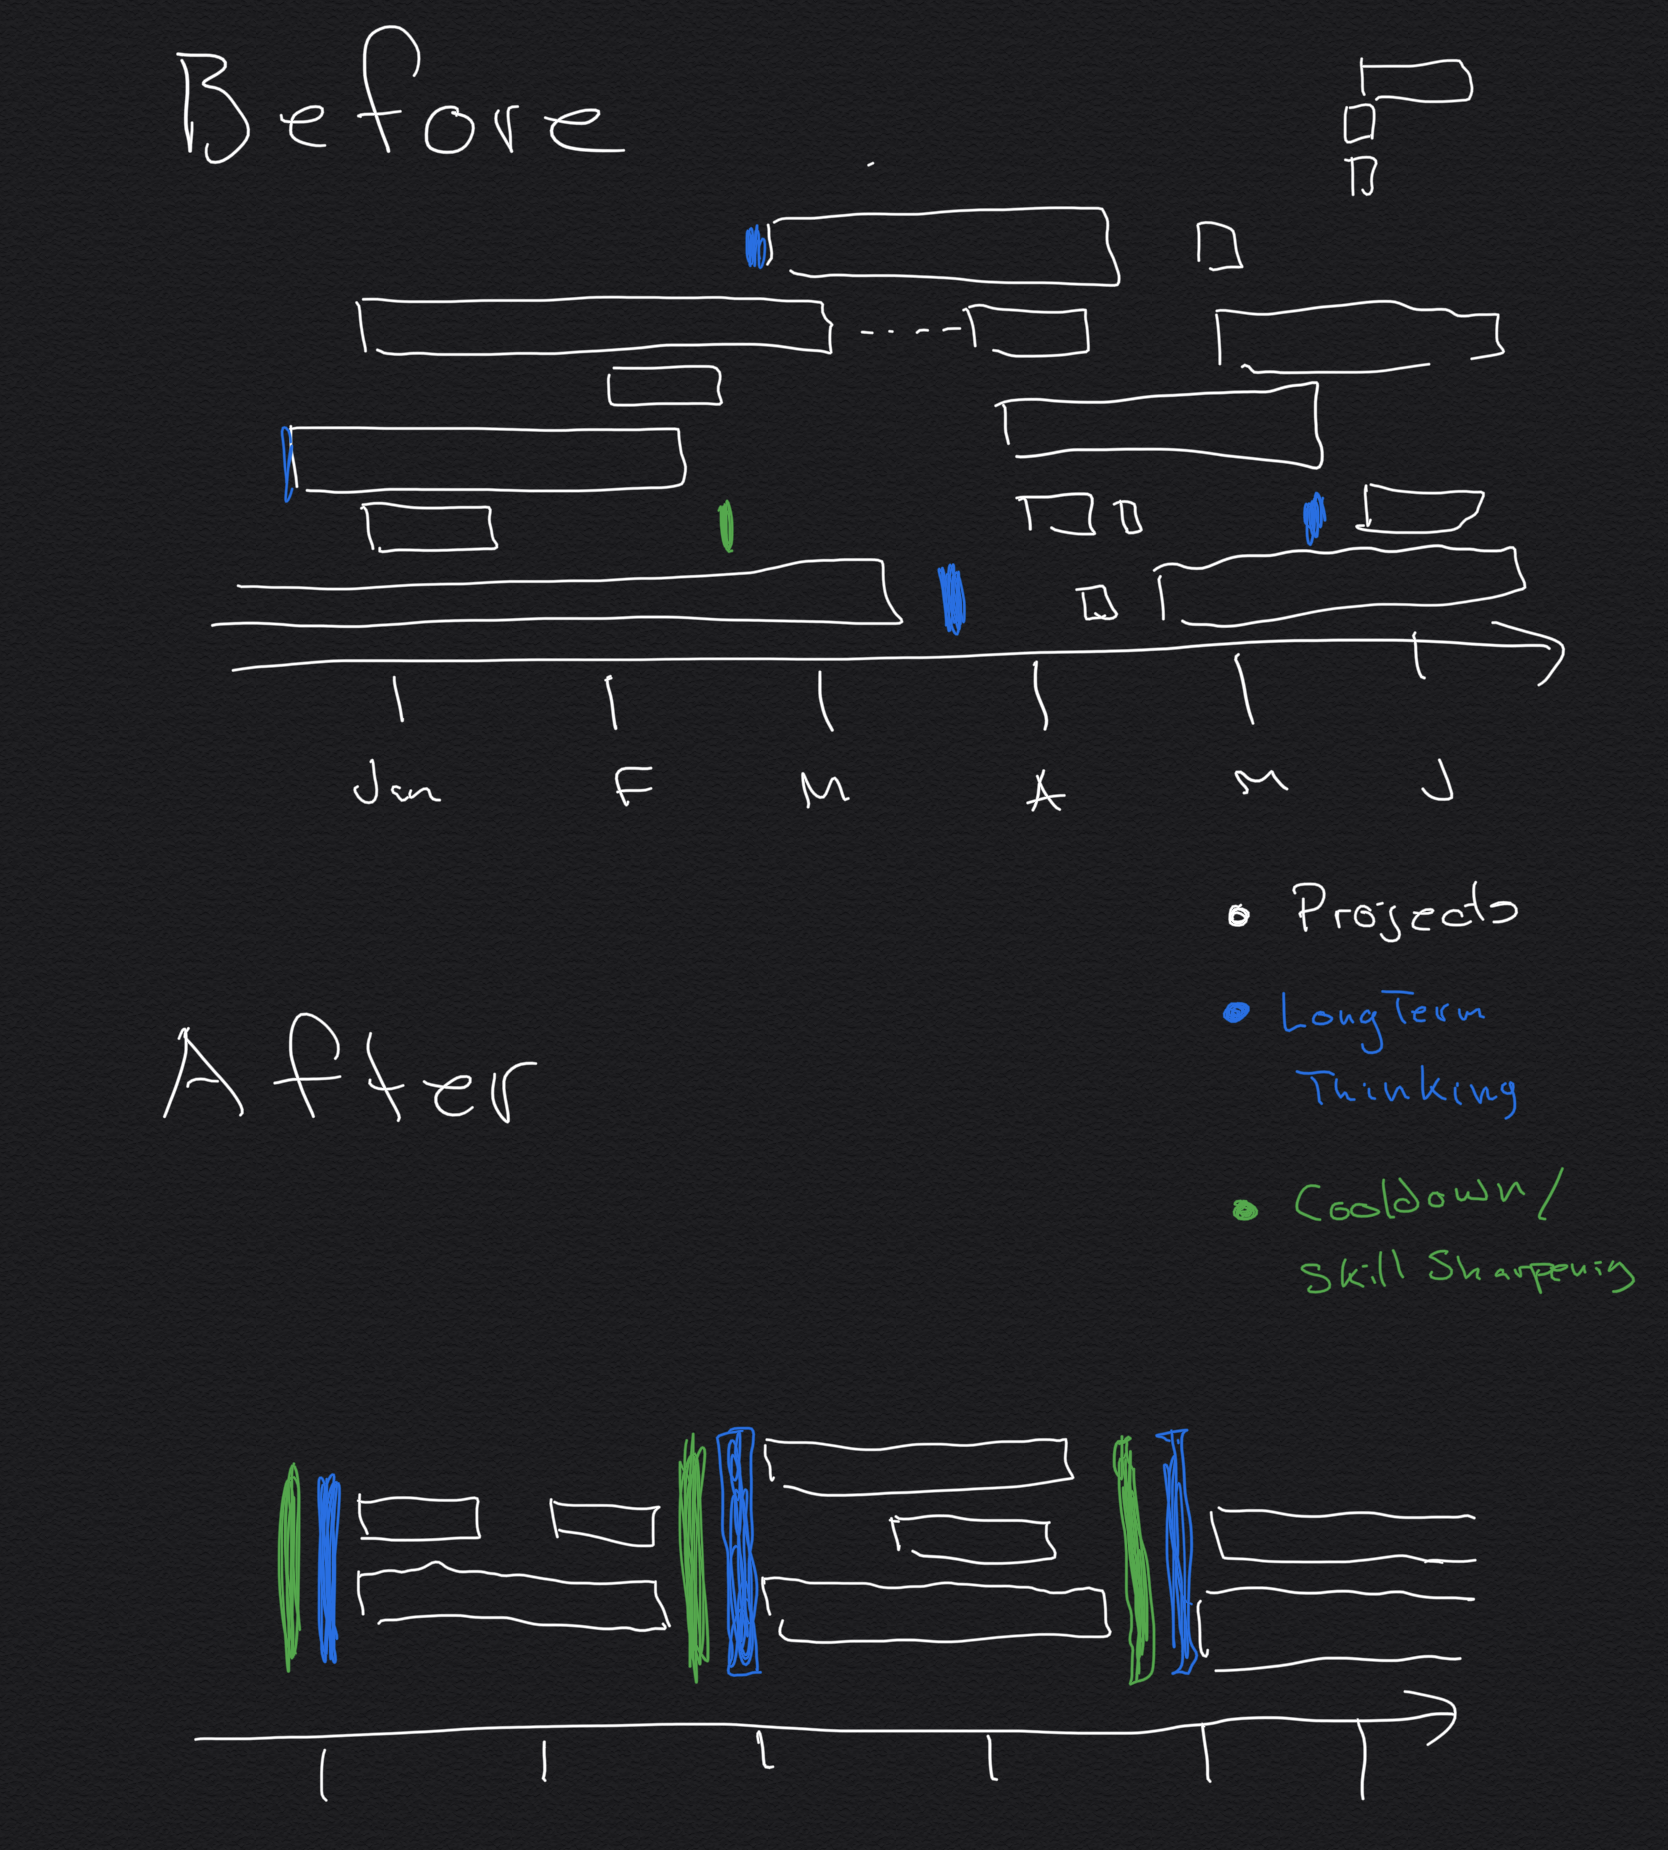 Before
Jan F M A M J
Projects
Long Term
Thinking
After
Cooldown/
Skill Sharpening